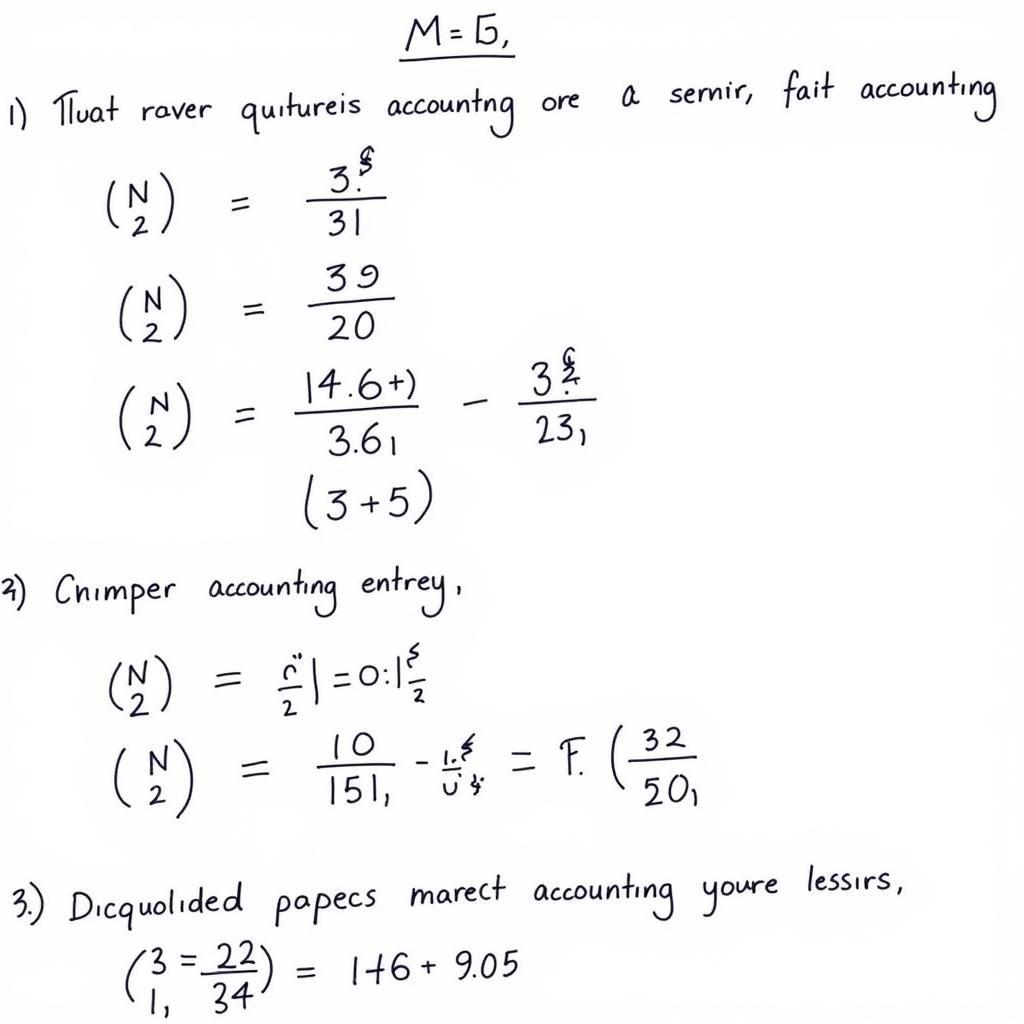 M = 5,
1) Tluat raver quitureis accountng ore a sernir, fait accounting
(N 2) = 3. / 31
(N 2) = 39 / 20
(N 2) = 14.6+) / 3.61 - 32 / 23,
(3+5)
2) Cnimper accounting entrey,
(N 2) = / 2 | = 0:1 / 2
(N 2) = 10 / 151, - = F. (32 / 50,
3.) Dicquolided papecs marect accounting youre lessirs,
(3 1, = 22 / 34) = 1+6 + 9.05